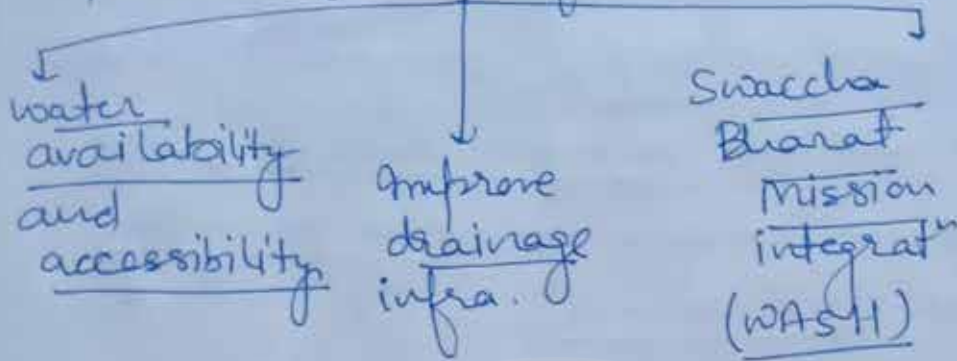 water
availability
and
accessibility
Improve
drainage
infra.
Swaccha
Bharat
Mission
integratⁿ
(WASH)